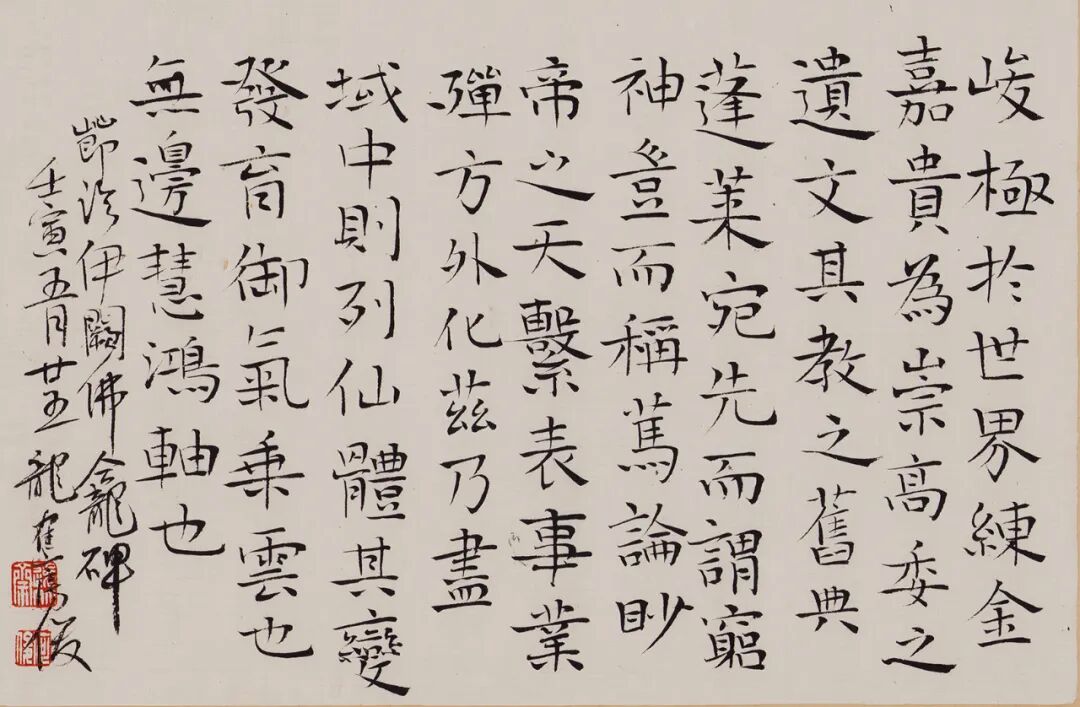 峻極於世界練金
嘉貴為崇高委之
遺文其教之舊典
蓬萊宛先而謂窮
神豈而稱篤論眇
帝之天繫表事業
殫方外化茲乃盡
域中則列仙體其變
發育御氣乘雲也
無邊慧鴻軸也
節臨伊闕佛龕碑
壬寅五月廿五龍